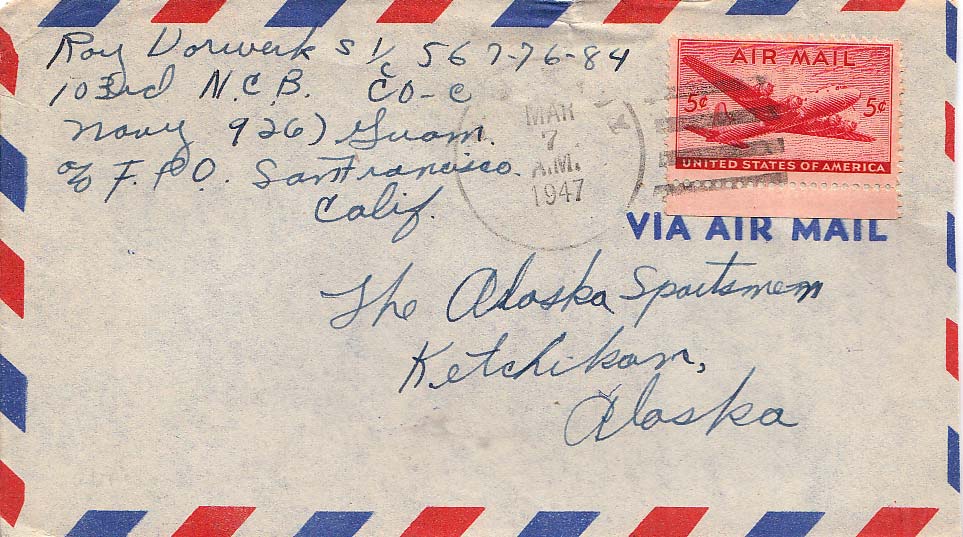 Roy Vorwerk S 1/c 567-76-84
103rd N.C.B. CO-C
Navy 926) Guam.
℅ F.P.O. San Francisco
Calif.
MAR
7
A.M.
1947
AIR MAIL
5¢ 5¢
UNITED STATES OF AMERICA
VIA AIR MAIL
The Alaska Sportsmen
Ketchikan,
Alaska